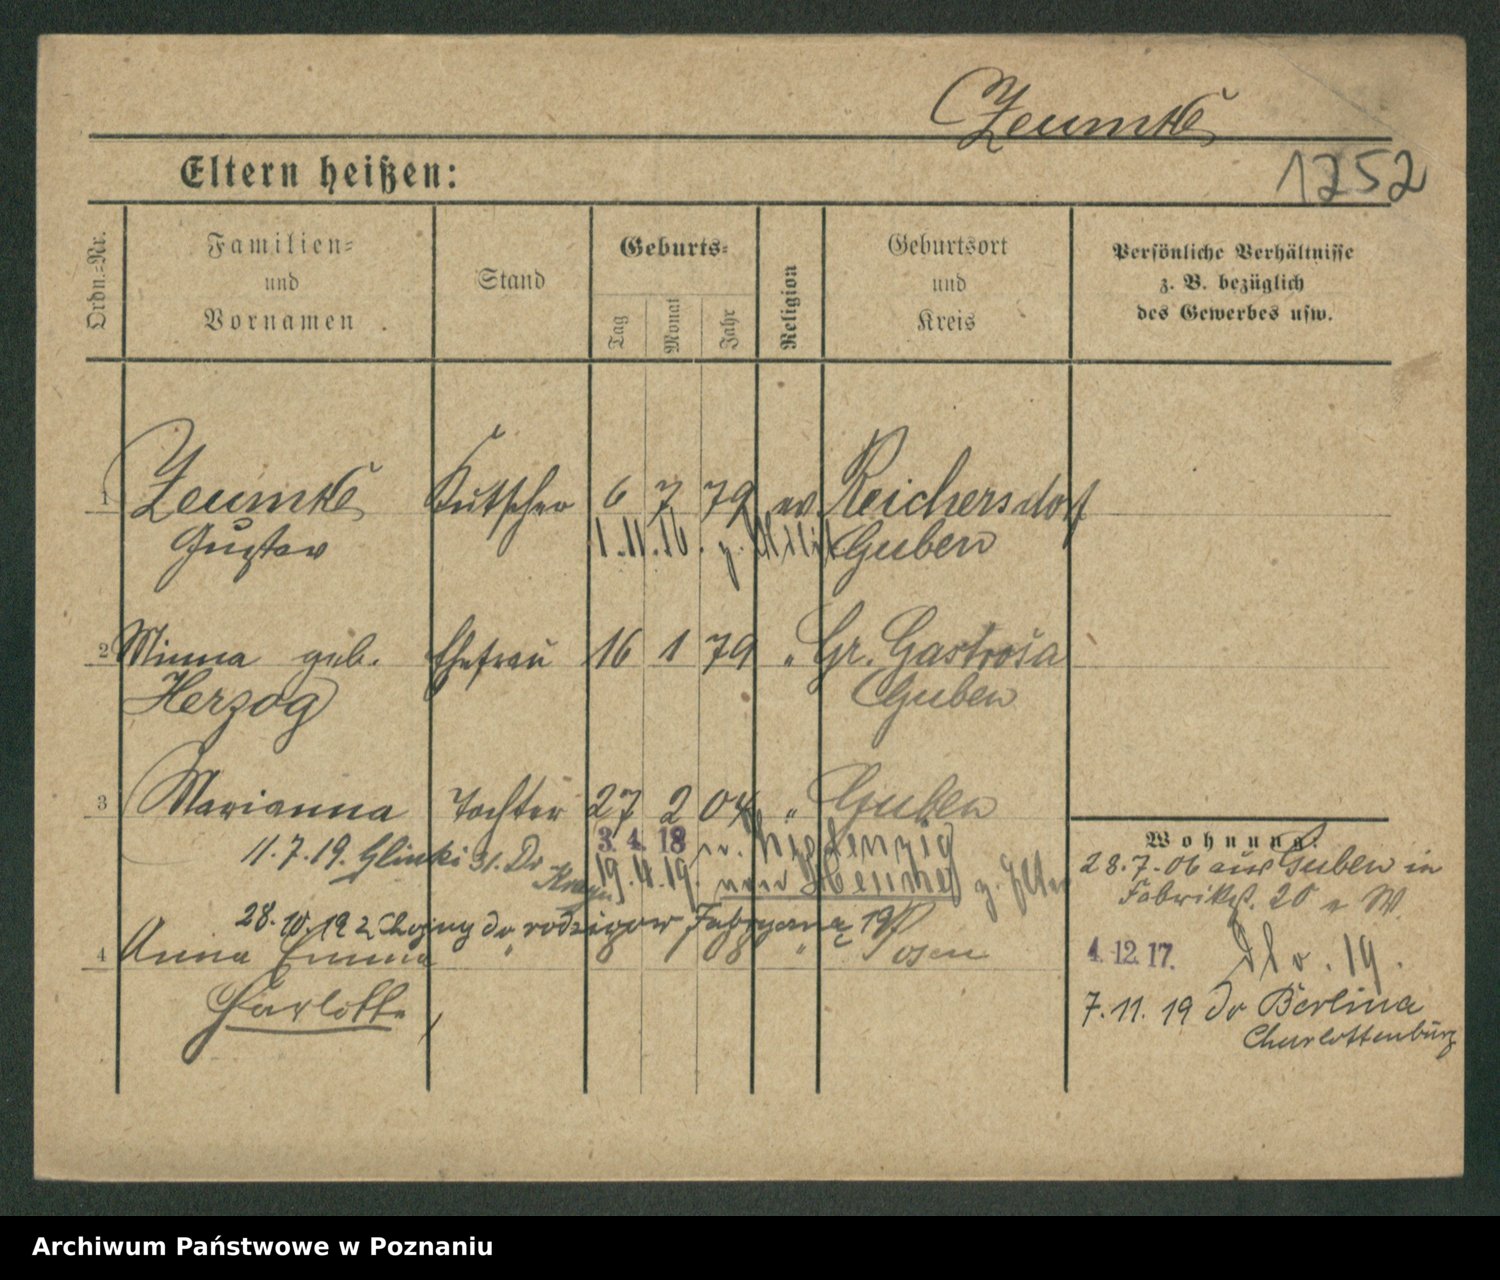 Zeumke
Eltern heißen:
1252
Ordn.=Nr.
Familien=
und
Vornamen
Stand
Geburts=
Tag
Monat
Jahr
Religion
Geburtsort
und
Kreis
Persönliche Verhältnisse
z. B. bezüglich
des Gewerbes usw.
1 Zeumke Kutscher 6 7 79 ev. Reichersdorf
Gustav 1.11.16. z. Guben
2 Minna geb. Ehefrau 16 1 79 " Gr. Gastrosa
Herzog Guben
3 Marianna Tochter 27 2 04 " Guben
11.7.19. Glinki 31. Do
3. 4. 18
19.4.19.
28.10.19 z do rodziców Fabryczna 19
4 Anna Emma " 8 1 08 " Posen
Charlotte
Wohnung.
28.7.06 aus Guben in
Fabrikst. 20 W.
4. 12. 17. 19.
7.11.19 do Berlina
Charlottenburg
Archiwum Państwowe w Poznaniu